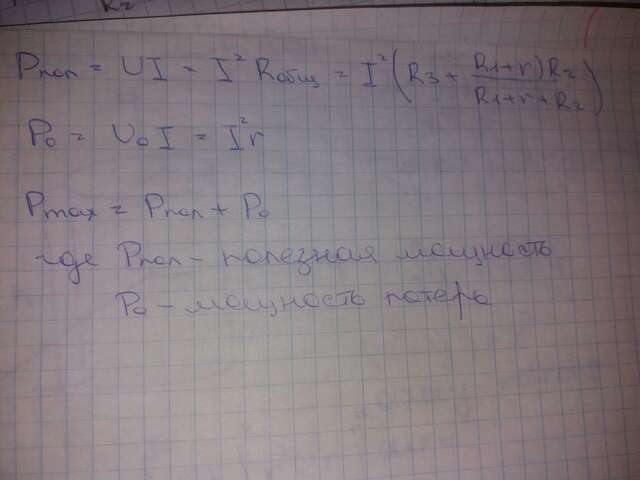 R2
Pпол = UI = I² Rобщ = I² (R3 + (R1+r)R2 / (R1+r+R2))
P0 = U0 I = I² r
Pmax = Pпол + P0
где Pпол - полезная мощность
P0 - мощность потерь